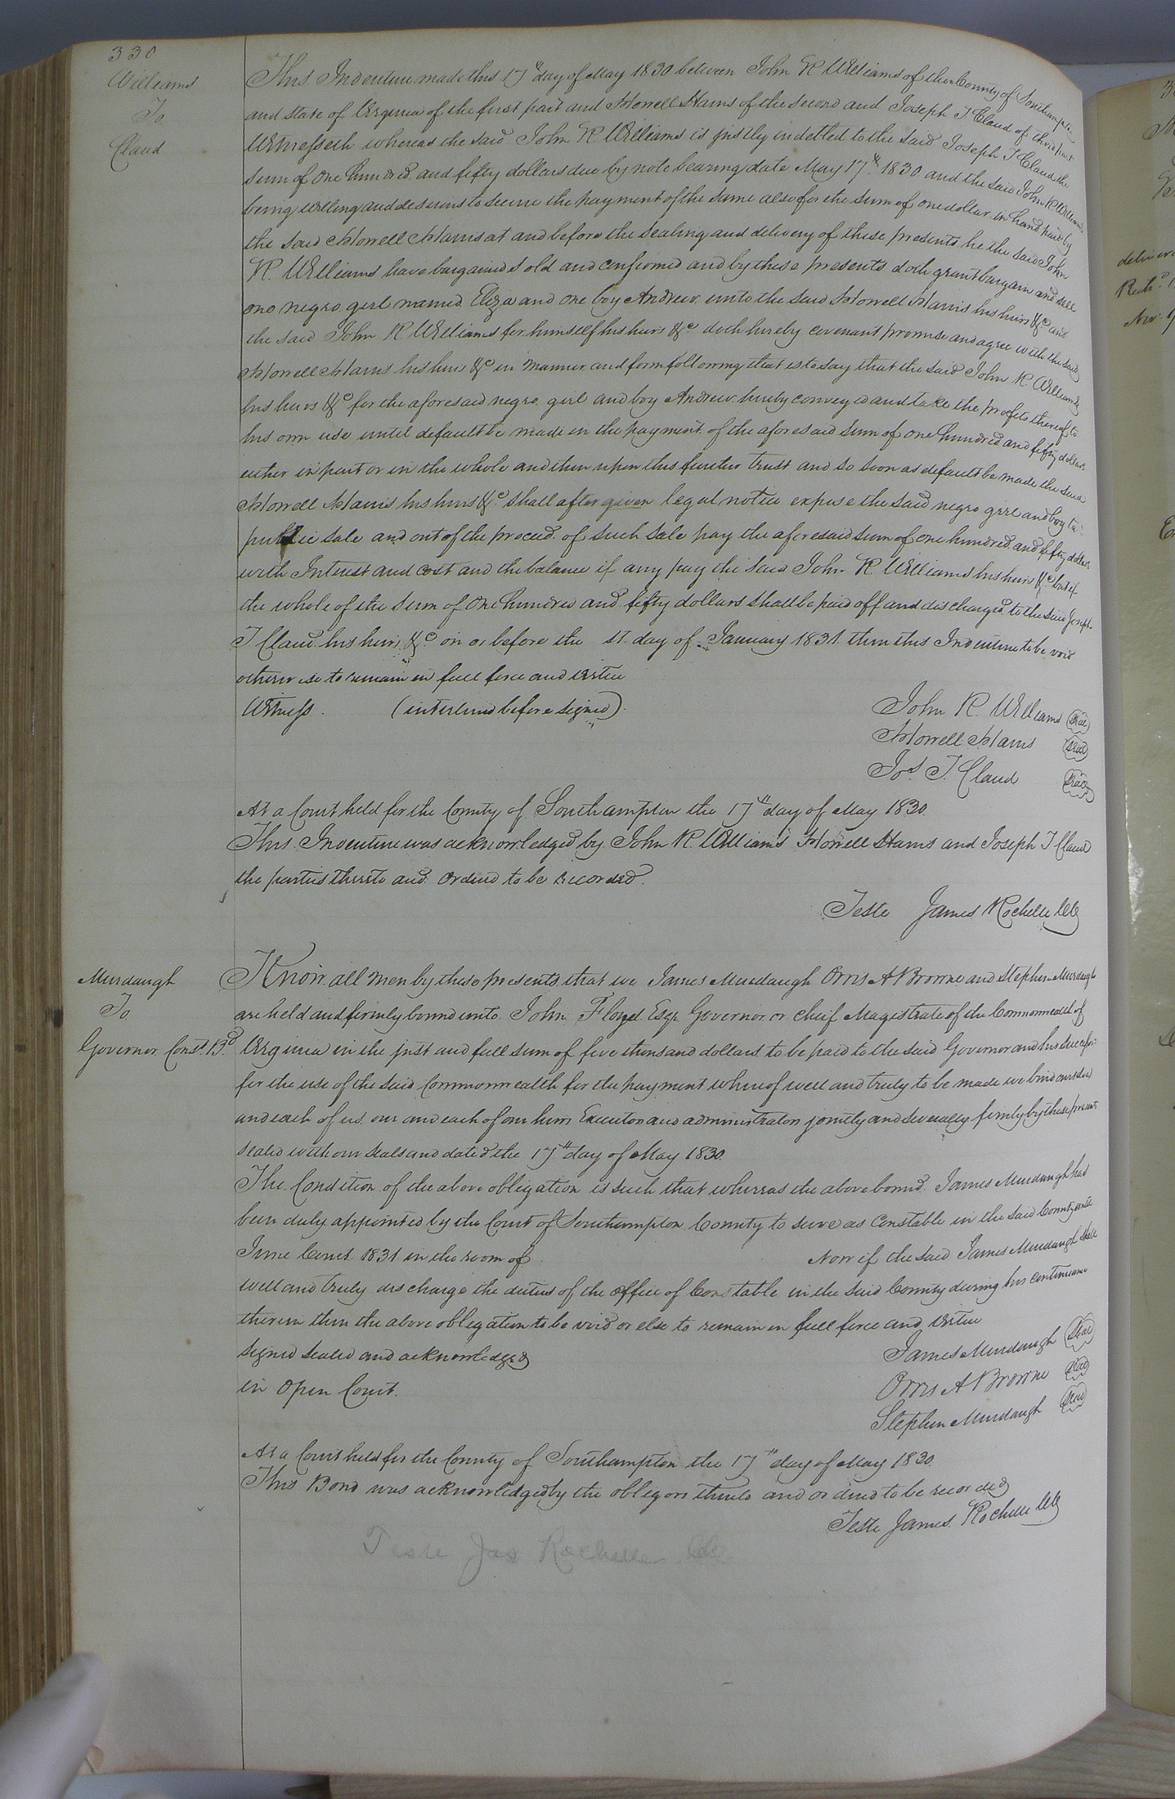 330
Williams
To
Claud
This Indenture made this 17th day of May 1830 between John R Williams of the County of Southampton
and State of Virginia of the first part and Howell Harris of the second and Joseph T Claud of the
Witnesseth whereas the said John R Williams is justly indetted to the said Joseph T Claud the
sum of one hundred and fifty dollars due by note bearing date May 17th 1830 and the said John R Williams
being willing and desirous to secure the payment of the same also for the sum of one dollar in hand paid by
the said Howell Harris at and before the sealing and delivery of these presents he the said John
R Williams have bargained sold and confirmed and by these presents doth grant bargain and sell
one negro girl named Eliza and one boy Andrew unto the said Howell Harris his heirs &c and
the said John R Williams for himself his heirs &c doth hereby covenant promise and agree with the said
Howell Harris his heirs &c in manner and form following that is to say that the said John R Williams
his heirs &c for the aforesaid negro girl and boy Andrew hereby conveyed and take the profits thereof to
his own use until default be made in the payment of the aforesaid sum of one hundred and fifty dollars
either in part or in the whole and then upon this further trust and so soon as default be made the said
Howell Harris his heirs &c shall after given legal notice expose the said negro girl and boy to
public sale and out of the proceed of such sale pay the aforesaid sum of one hundred and fifty dollars
with Interest and cost and the balance if any pay the said John R Williams his heirs &c but if
the whole of the sum of One hundred and fifty dollars shall be paid off and discharged to the said Joseph
T Claud his heirs &c on or before the 1st day of January 1831 then this Indenture to be void
otherwise to remain in full force and virtue
Witness (interlined before signed)
John R Williams Seal
Howell Harris Seal
Jos T. Claud Seal
At a Court held for the County of Southampton the 17th day of May 1830
This Indenture was acknowledged by John R Williams Howell Harris and Joseph T Claud
the parties thereto and ordered to be recorded.
Teste James Rochelle Clk
Murdaugh
To
Governor Const. Bd
Know all men by these presents that we James Murdaugh Orris A Browne and Stephen Murdaugh
are held and firmly bound unto John Floyd Esqr Governor or chief Magistrate of the Commonwealth of
Virginia in the just and full sum of five thousand dollars to be paid to the said Governor and his successors
for the use of the said Commonwealth for the payment whereof well and truly to be made we bind ourselves
and each of us our and each of our heirs Executors and administrators jointly and severally firmly by these presents
sealed with our seals and dated the 17th day of May 1830.
The Condition of the above obligation is such that whereas the above bound James Murdaugh has
been duly appointed by the Court of Southampton County to serve as Constable in the said County until
June Court 1831 in the room of Now if the said James Murdaugh shall
well and truly discharge the duties of the office of Constable in the said County during his continuance
therein then the above obligation to be void or else to remain in full force and virtue
signed sealed and acknowledged
in open Court.
James Murdaugh Seal
Orris A Browne Seal
Stephen Murdaugh Seal
At a Court held for the County of Southampton the 17th day of May 1830.
This Bond was acknowledged by the obligors thereto and ordered to be recorded
Teste James Rochelle Clk
Teste Jas Rochelle Clk